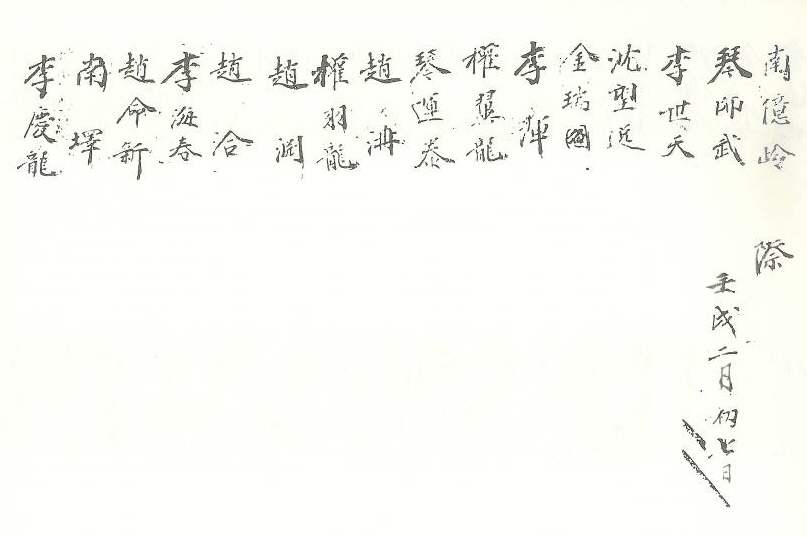 南億岭 際
琴卽武 壬戌二月初七日
李世天
沈聖從
金瑞國
李渾
權翼龍
琴運泰
趙㴂
權羽龍
趙渕
趙合
李海春
趙命新
南墿
李慶龍